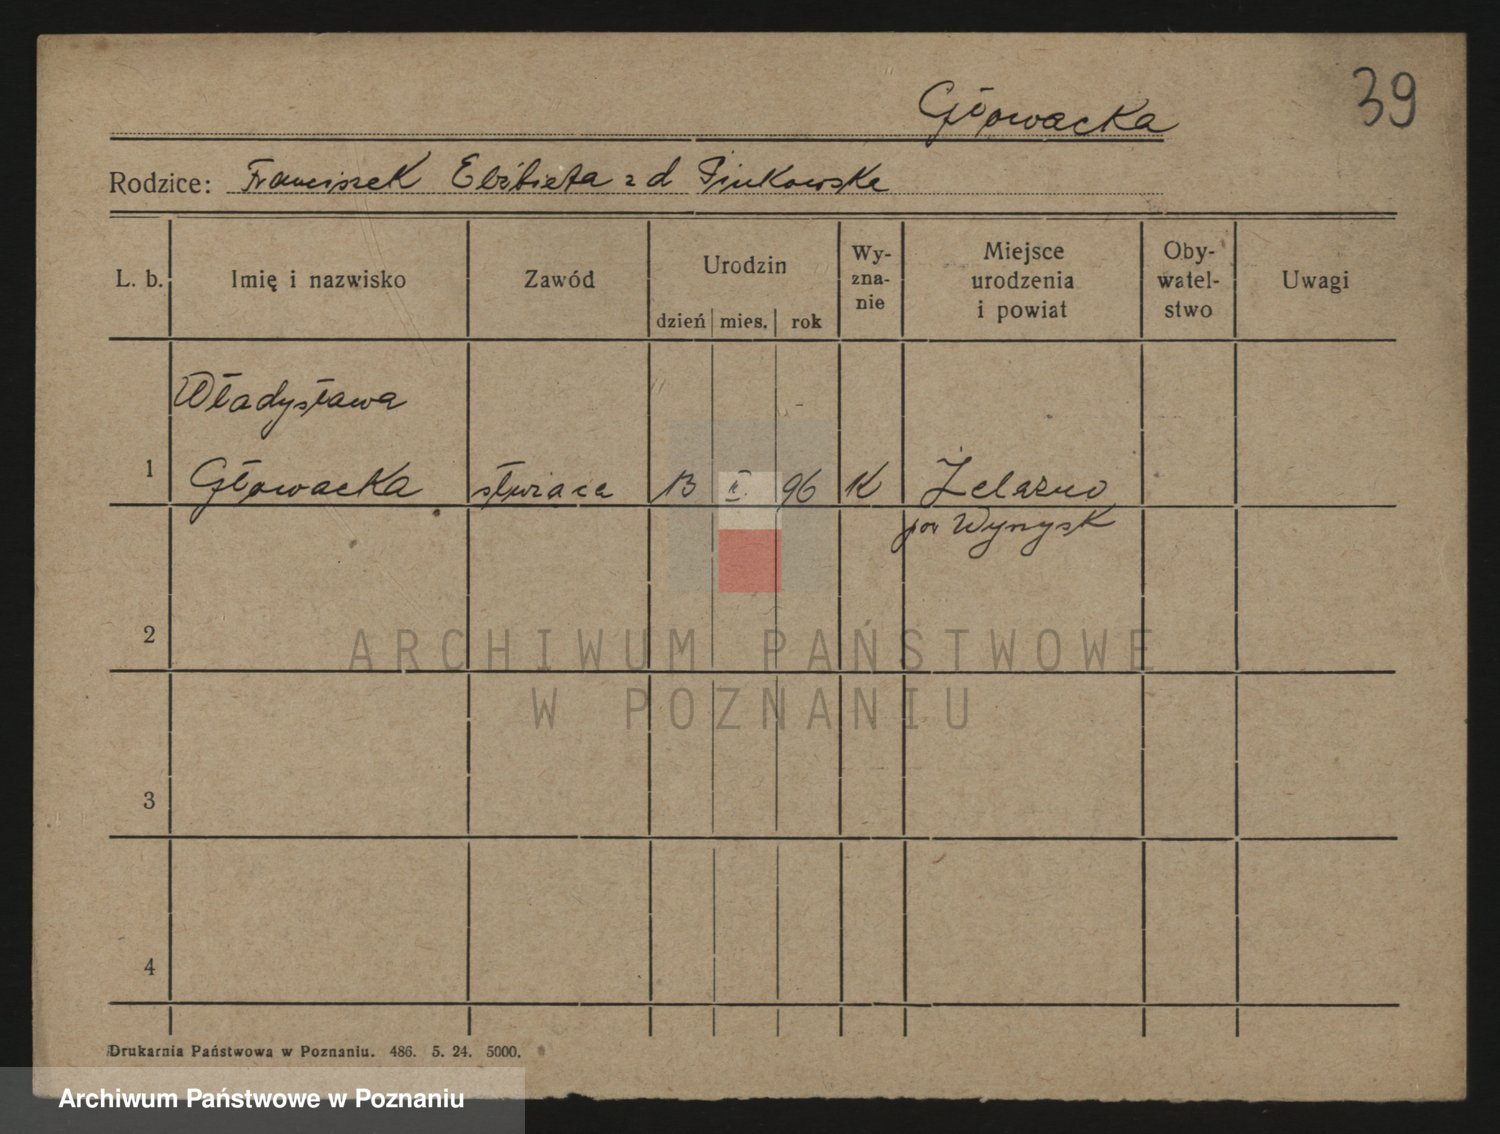 39
Głowacka
Rodzice: Franciszek Elżbieta z d Pinkowske
L. b. Imię i nazwisko Zawód Urodzin dzień mies. rok Wy-zna-nie Miejsce urodzenia i powiat Oby-watel-stwo Uwagi
Władysława
1 Głowacka służąca 13 II. 96 K Żelazno
pow Wyrzysk
2
3
4
ARCHIWUM PAŃSTWOWE
W POZNANIU
Drukarnia Państwowa w Poznaniu. 486. 5. 24. 5000.
Archiwum Państwowe w Poznaniu